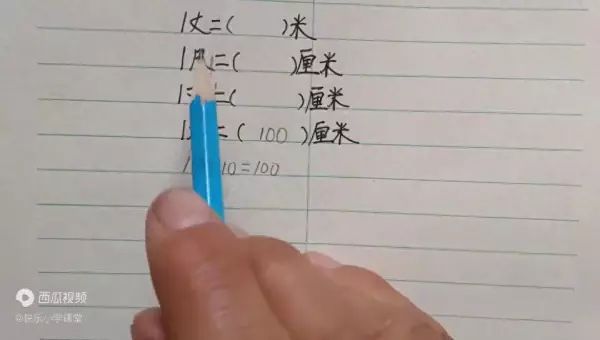 1丈=( )米
1 =( )厘米
1 =( )厘米
1 =( 100 )厘米
1 10=100
西瓜视频
@快乐小学课堂